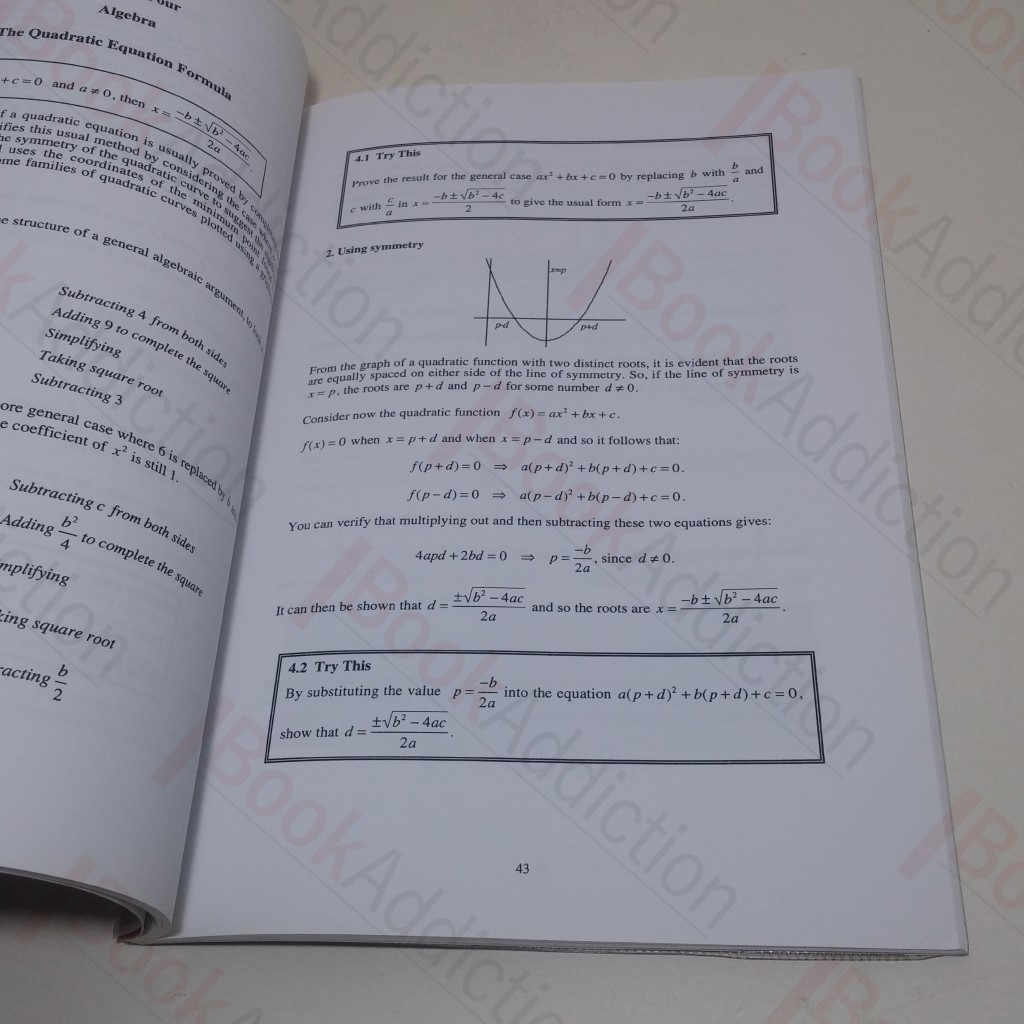 our
Algebra
The Quadratic Equation Formula
+ c = 0 and a ≠ 0, then x = \frac{-b ± √(b² − 4ac)}{2a}
f a quadratic equation is usually proved by
ifies this usual method by considering the case
he symmetry of the quadratic curve to suggest the
uses the coordinates of the minimum point
me families of quadratic curves plotted using a
e structure of a general algebraic argument, to
Subtracting 4 from both sides
Adding 9 to complete the square
Simplifying
Taking square root
Subtracting 3
ore general case where 6 is replaced by b
e coefficient of x² is still 1.
Subtracting c from both sides
Adding \frac{b²}{4} to complete the square
mplifying
king square root
racting \frac{b}{2}
4.1 Try This
Prove the result for the general case ax² + bx + c = 0 by replacing b with \frac{b}{a} and
c with \frac{c}{a} in x = \frac{-b ± √(b² − 4c)}{2} to give the usual form x = \frac{-b ± √(b² − 4ac)}{2a}.
2. Using symmetry
x=p
p-d p+d
From the graph of a quadratic function with two distinct roots, it is evident that the roots
are equally spaced on either side of the line of symmetry. So, if the line of symmetry is
x = p, the roots are p + d and p − d for some number d ≠ 0.
Consider now the quadratic function f(x) = ax² + bx + c.
f(x) = 0 when x = p + d and when x = p − d and so it follows that:
f(p + d) = 0 ⇒ a(p + d)² + b(p + d) + c = 0.
f(p − d) = 0 ⇒ a(p − d)² + b(p − d) + c = 0.
You can verify that multiplying out and then subtracting these two equations gives:
4apd + 2bd = 0 ⇒ p = \frac{-b}{2a}, since d ≠ 0.
It can then be shown that d = \frac{±√(b² − 4ac)}{2a} and so the roots are x = \frac{-b ± √(b² − 4ac)}{2a}.
4.2 Try This
By substituting the value p = \frac{-b}{2a} into the equation a(p + d)² + b(p + d) + c = 0,
show that d = \frac{±√(b² − 4ac)}{2a}.
43
BookAddiction